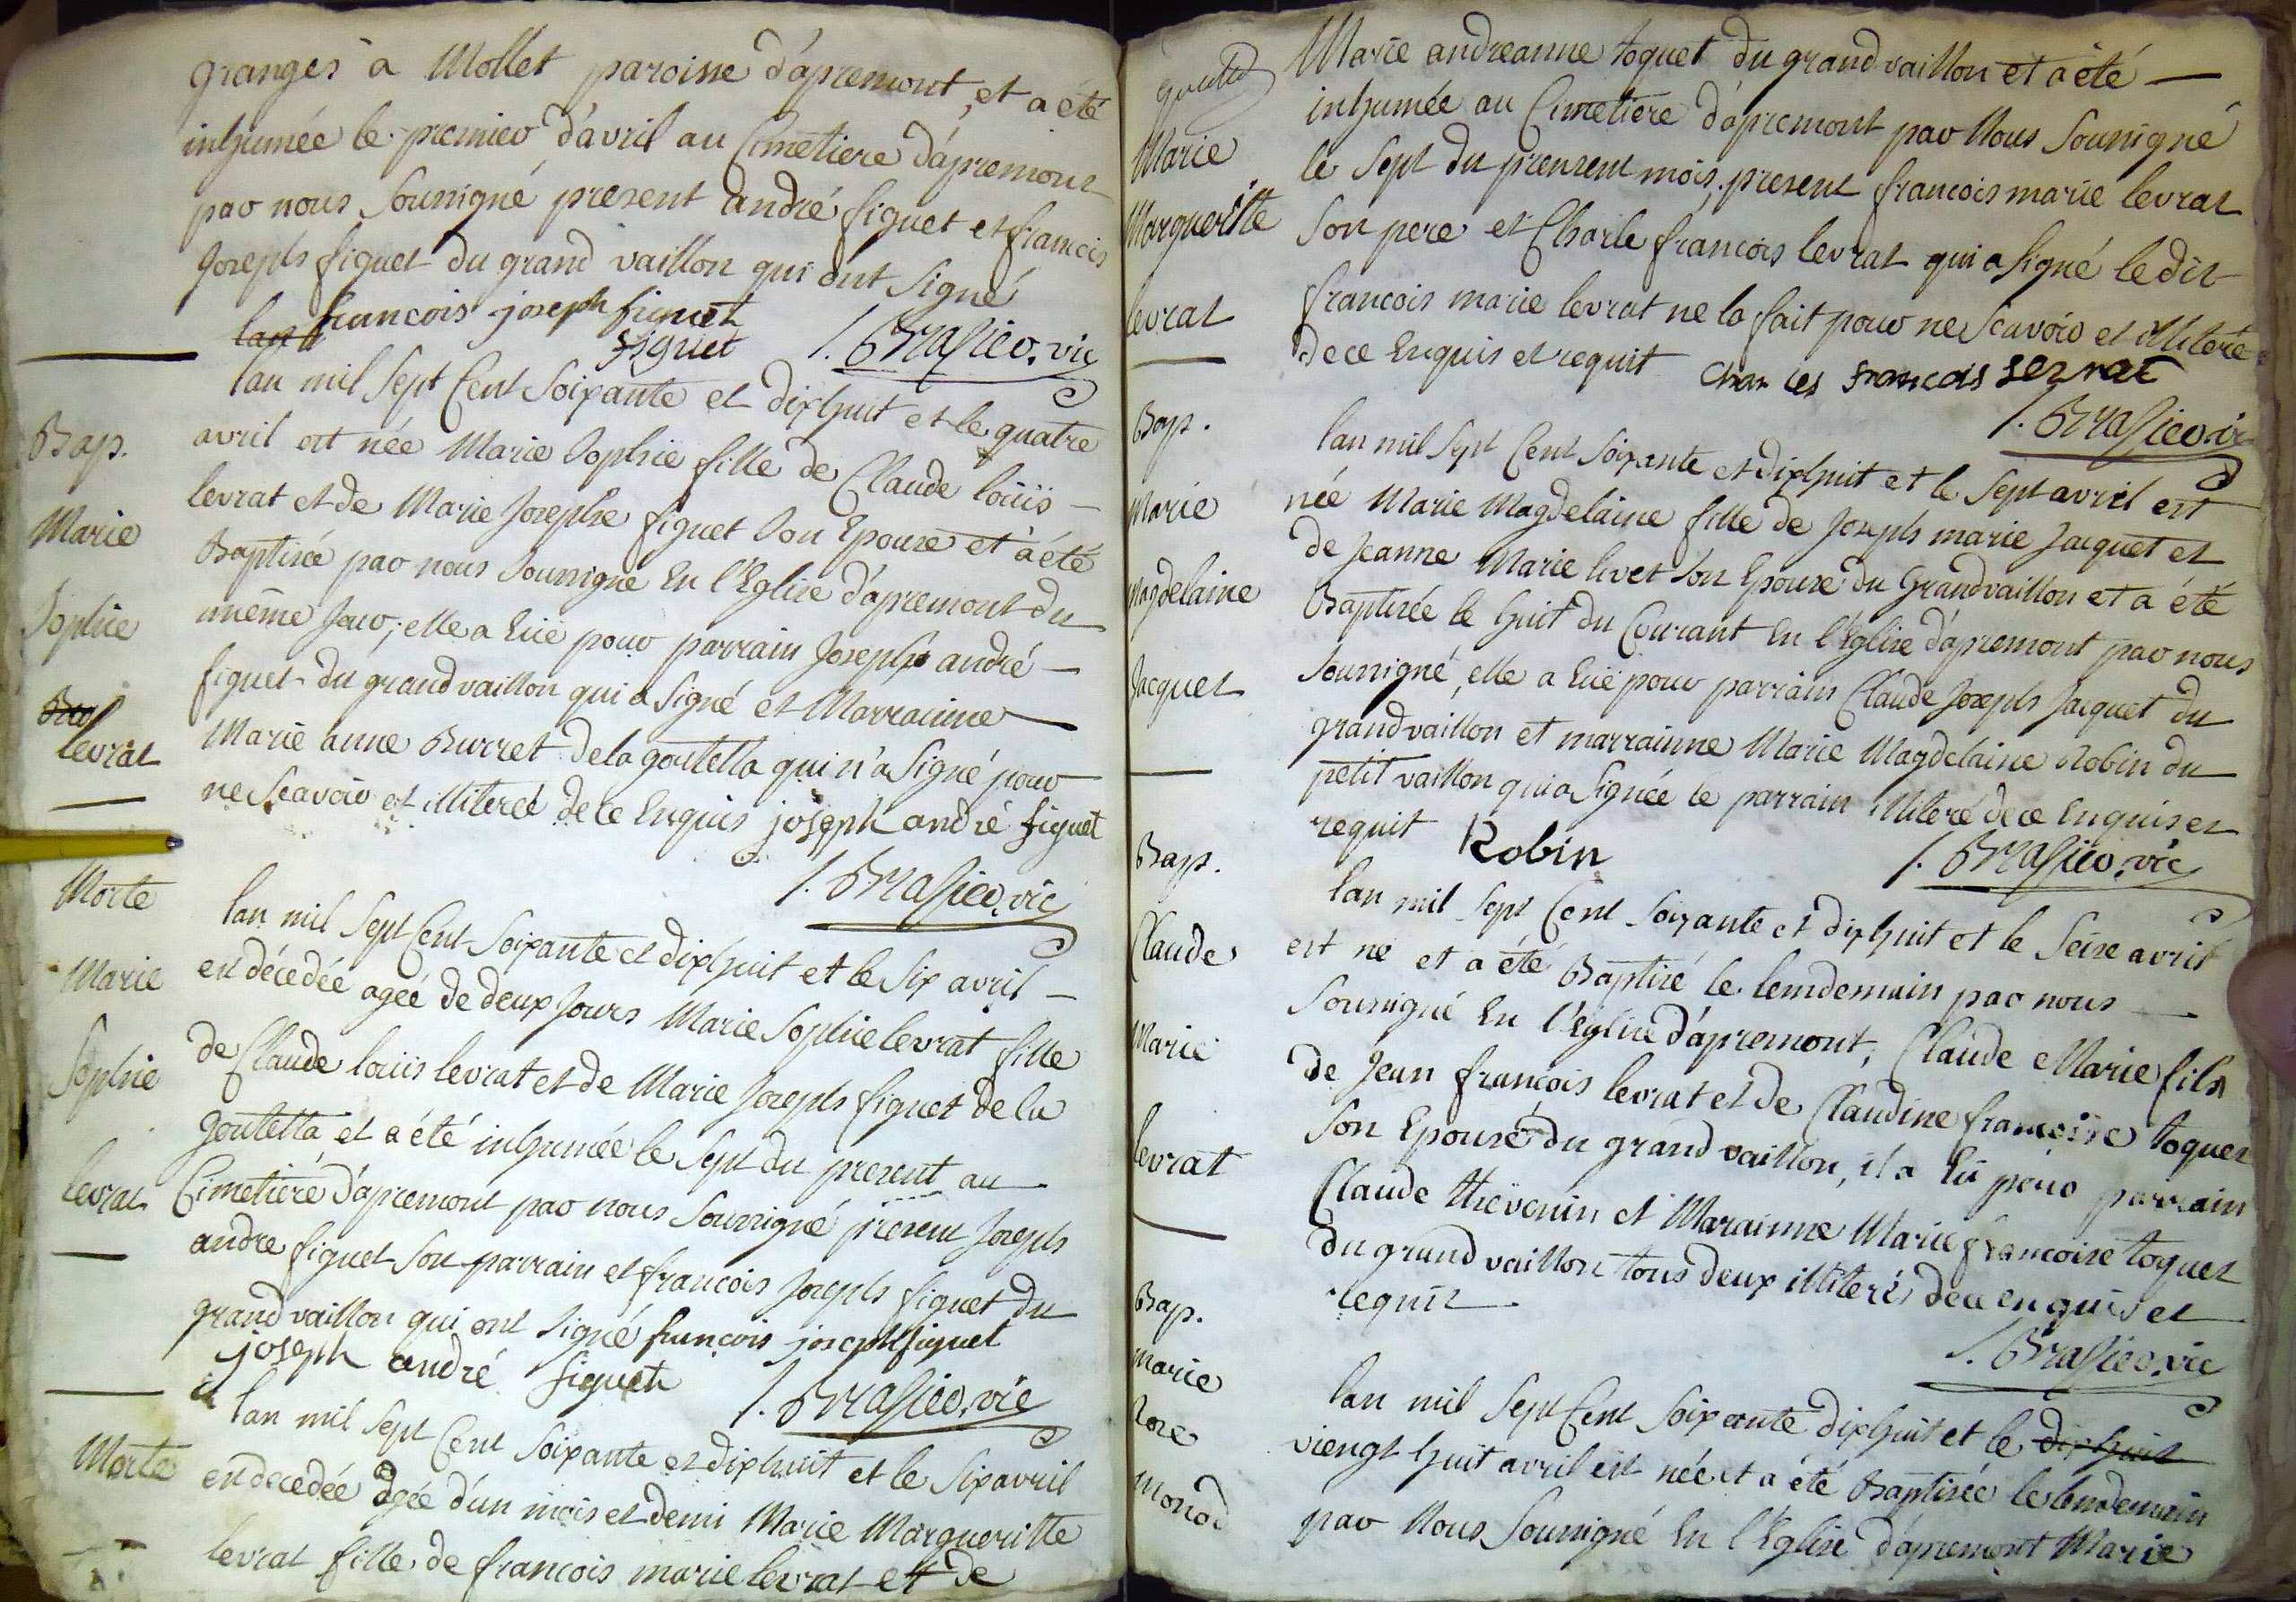 granges à Mollet paroisse d'apremont, et a été
inhumée le premier d'avril au Cimetiere d'apremont
par nous soussigné present andré figuet et francois
Joseph figuet du grand vaillon qui ont signé
francois joseph figuet
figuet J. Brasier. vic
Bap.
Marie
Sophie
levrat
lan mil sept Cent soixante et dixhuit et le quatre
avril est née Marie Sophie fille de Claude louis
levrat et de Marie Josephe figuet son Epouse et a été
Baptisée par nous soussigné En l'Eglise d'apremont du
mnême Jour; elle a Euë pour parrain Joseph andré
figuet du grand vaillon qui a signé et Marrainne
Marie anne Burret de la goutetta qui n'a signé pour
ne scavoir et illiteréé de ce Enquis joseph andré figuet
J. Brasier. vic
Morte
Marie
Sophie
levrat
lan mil sept Cent soixante et dixhuit et le six avril
est décedée ageé de deux Jours Marie Sophie levrat fille
de Claude louis levrat et de Marie Joseph figuet de la
goutetta et a été inhumée le sept du present au
Cimetiere d'apremont par nous soussigné present Joseph
andre figuet son parrain et francois Joseph figuet du
grand vaillon qui ont signé francois joseph figuet
joseph andré figuet J. Brasier. vic
Morte
lan mil sept Cent soixante et dixhuit et le six avril
est decedée agée d'un mois et demi Marie Margueritte
levrat fille de francois marie levrat et de
Marie
Margueritte
levrat
Marie andreanne toquet du grand vaillon et a été
inhumée au Cimetiere d'apremont par Nous soussigné
le sept du present mois, present francois marie levrat
son pere et Charle francois levrat qui a signé le dit
francois marie levrat ne la fait pour ne scavoir et illiteré
de ce Enquis et requit Charles francois levrat
J. Brasier. vic
Bap.
Marie
Magdelaine
Jacquet
lan mil sept Cent soixante et dixhuit et le sept avril est
née Marie Magdelaine fille de Joseph marie Jacquet et
de Jeanne Marie livet son Epouse du Grandvaillon et a été
Baptisée le huit du Courant En l'Eglise d'apremont par nous
soussigné, elle a Euë pour parrain Claude Joseph Jacquet du
grandvaillon et marrainne Marie Magdelaine Robin du
petit vaillon qui a signée le parrain illiteré de ce Enquis et
requit Robin J. Brasier. vic
Bap.
Claude
Marie
levrat
lan mil sept Cent soixante et dixhuit et le seise avril
est né et a été Baptisé le lendemain par nous
soussigné En l'Eglise d'apremont, Claude Marie fils
de Jean francois levrat et de Claudine francoise toquet
son Epouse du grand vaillon, il a Eü pour parrain
Claude thevenin et Marainne Marie francoise toquet
du grand vaillon tous deux illiterés de ce enquis et
requit
J. Brasier. vic
Bap.
Marie
Rose
Monod
lan mil sept Cent soixante dixhuit et le dixhuit
viengt huit avril est née et a été Baptisée le lendemain
par Nous soussigné En l'Eglise d'apremont Marie